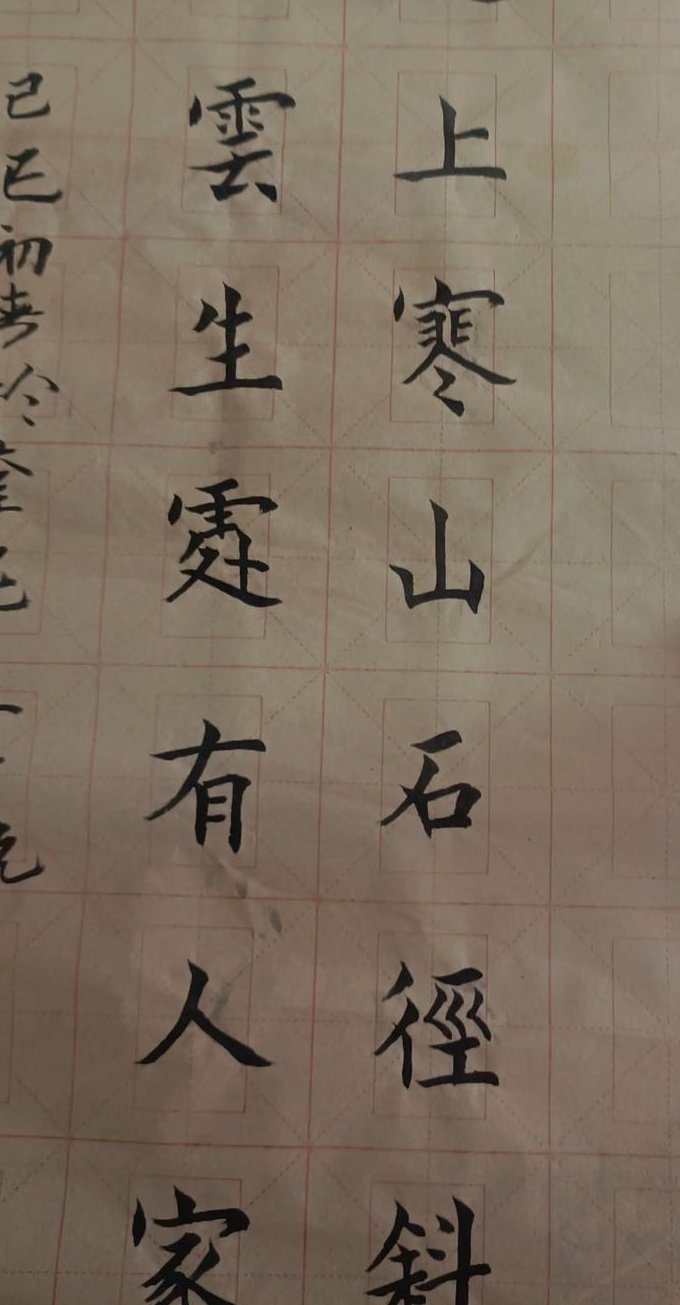 上寒山石徑斜
雲生處有人家
己巳初春於